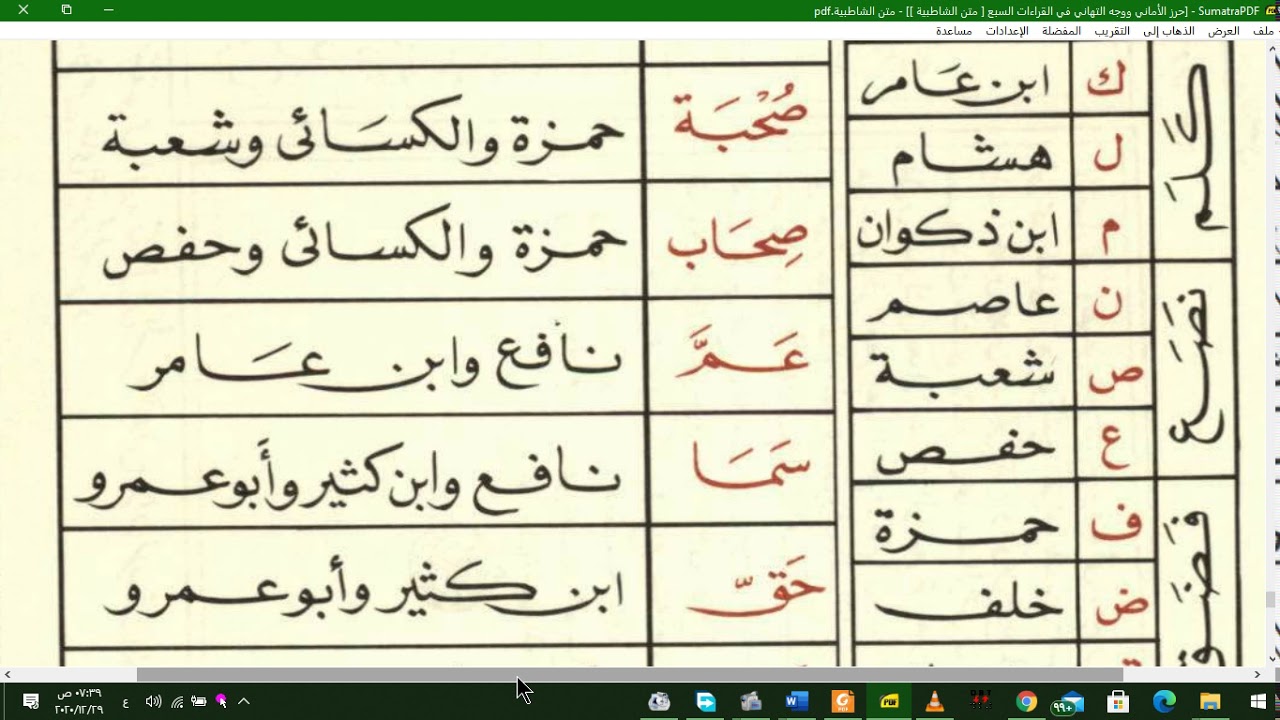 حرز الأماني ووجه التهاني في القراءات السبع [ متن الشاطبية ]] - متن الشاطبية.pdf] - SumatraPDF
ملف العرض الذهاب إلى التقريب المفضلة الإعدادات مساعدة
كَلَم
ك ابن عَامر
ل هشام
م ابن ذكوان
نَصَع
ن عاصم
ص شعبة
ع حفص
ف حمزة
ض خلف
صُحْبَة حمزة والكسَائى وشعبة
صِحَاب حمزة والكسائى وحفص
عَمَّ نافع وابن عَامر
سَمَا نافع وابن كثير وأَبو عمرو
حَقّ ابن كثير وأبو عمرو
٠٧:٣٩ ص
٢٠٢٠/١٢/٢٩
ع
+٩٩
PDF